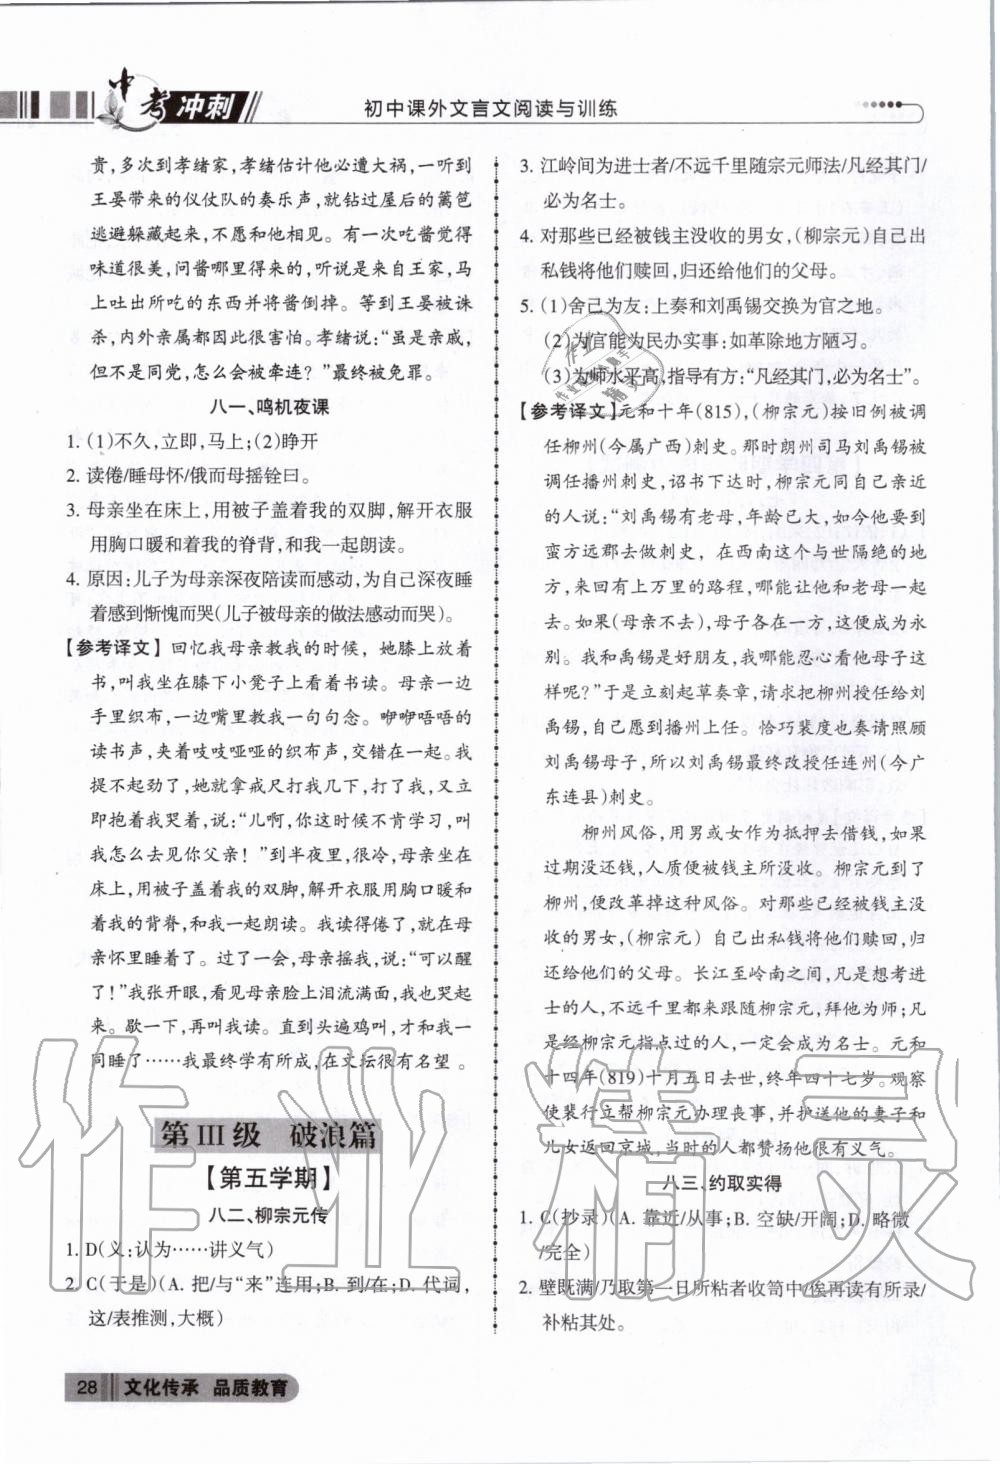 中考冲刺
初中课外文言文阅读与训练
贵,多次到孝绪家,孝绪估计他必遭大祸,一听到
王晏带来的仪仗队的奏乐声,就钻过屋后的篱笆
逃避躲藏起来,不愿和他相见。有一次吃酱觉得
味道很美,问酱哪里得来的,告诉他来自王家,马
上吐出所吃的东西并将酱倒掉。等到王晏被诛
杀,内外亲属都因此很害怕。孝绪说:“虽是亲戚,
但不是同党,怎么会被牵连?”最终被免罪。
八一、鸣机夜课
1. (1)不久,立即,马上;(2)睁开
2. 读倦/睡母怀/俄而母摇铨曰。
3. 母亲坐在床上,用被子盖着我的双脚,解开衣服
用胸口暖和着我的脊背,和我一起朗读。
4. 原因:儿子为母亲深夜陪读而感动,为自己深夜睡
着感到惭愧而哭(儿子被母亲的做法感动而哭)。
【参考译文】回忆我母亲教我的时候，她膝上放着
书,叫我坐在膝下小凳子上看着书读。母亲一边
手里织布,一边嘴里教我一句句念。咿咿唔唔的
读书声,夹着吱吱哑哑的织布声,交错在一起。我
提不起劲了,她就拿戒尺打我几下,打了我,又立
即抱着我哭着,说:“儿啊,你这时候不肯学习,叫
我怎么去见你父亲!”到半夜里,很冷,母亲坐在
床上,用被子盖着我的双脚,解开衣服用胸口暖和
着我的背脊,和我一起朗读。我读得倦了,就在母
亲怀里睡着了。过了一会,母亲摇我,说:“可以醒
了!”我张开眼,看见母亲脸上泪流满面,我也哭起
来。歇一下,再叫我读。直到头遍鸡叫,才和我一
同睡了……我最终学有所成,在文坛很有名望。
第III级 破浪篇
【第五学期】
八二、柳宗元传
1. D(义:认为……讲义气)
2. C(于是)(A. 把/与“来”连用;B. 到/在;D. 代词,
这/表推测,大概)
3. 江岭间为进士者/不远千里随宗元师法/凡经其门/
必为名士。
4. 对那些已经被钱主没收的男女,(柳宗元)自己出
私钱将他们赎回,归还给他们的父母。
5. (1)舍己为友:上奏和刘禹锡交换为官之地。
(2)为官能为民办实事:如革除地方陋习。
(3)为师水平高,指导有方:“凡经其门,必为名士”。
【参考译文】元和十年(815),(柳宗元)按旧例被调
任柳州(今属广西)刺史。那时朗州司马刘禹锡被
调任播州刺史,诏书下达时,柳宗元同自己亲近
的人说:“刘禹锡有老母,年龄已大,如今他要到
蛮方远郡去做刺史,在西南这个与世隔绝的地
方,来回有上万里的路程,哪能让他和老母一起
去。如果(母亲不去),母子各在一方,这便成为永
别。我和禹锡是好朋友,我哪能忍心看他母子这
样呢?”于是立刻起草奏章,请求把柳州授任给刘
禹锡,自己愿到播州上任。恰巧裴度也奏请照顾
刘禹锡母子,所以刘禹锡最终改授任连州(今广
东连县)刺史。
柳州风俗,用男或女作为抵押去借钱,如果
过期没还钱,人质便被钱主所没收。柳宗元到了
柳州,便改革掉这种风俗。对那些已经被钱主没
收的男女,(柳宗元)自己出私钱将他们赎回,归
还给他们的父母。长江至岭南之间,凡是想考进
士的人,不远千里都来跟随柳宗元,拜他为师;凡
是经柳宗元指点过的人,一定会成为名士。元和
十四年(819)十月五日去世,终年四十七岁。观察
使裴行立帮柳宗元办理丧事,并护送他的妻子和
儿女返回京城,当时的人都赞扬他很有义气。
八三、约取实得
1. C(抄录)(A. 靠近/从事;B. 空缺/开阔;D. 略微
/完全)
2. 壁既满/乃取第一日所粘者收笥中/俟再读有所录/
补粘其处。
28 文化传承 品质教育
作业精灵